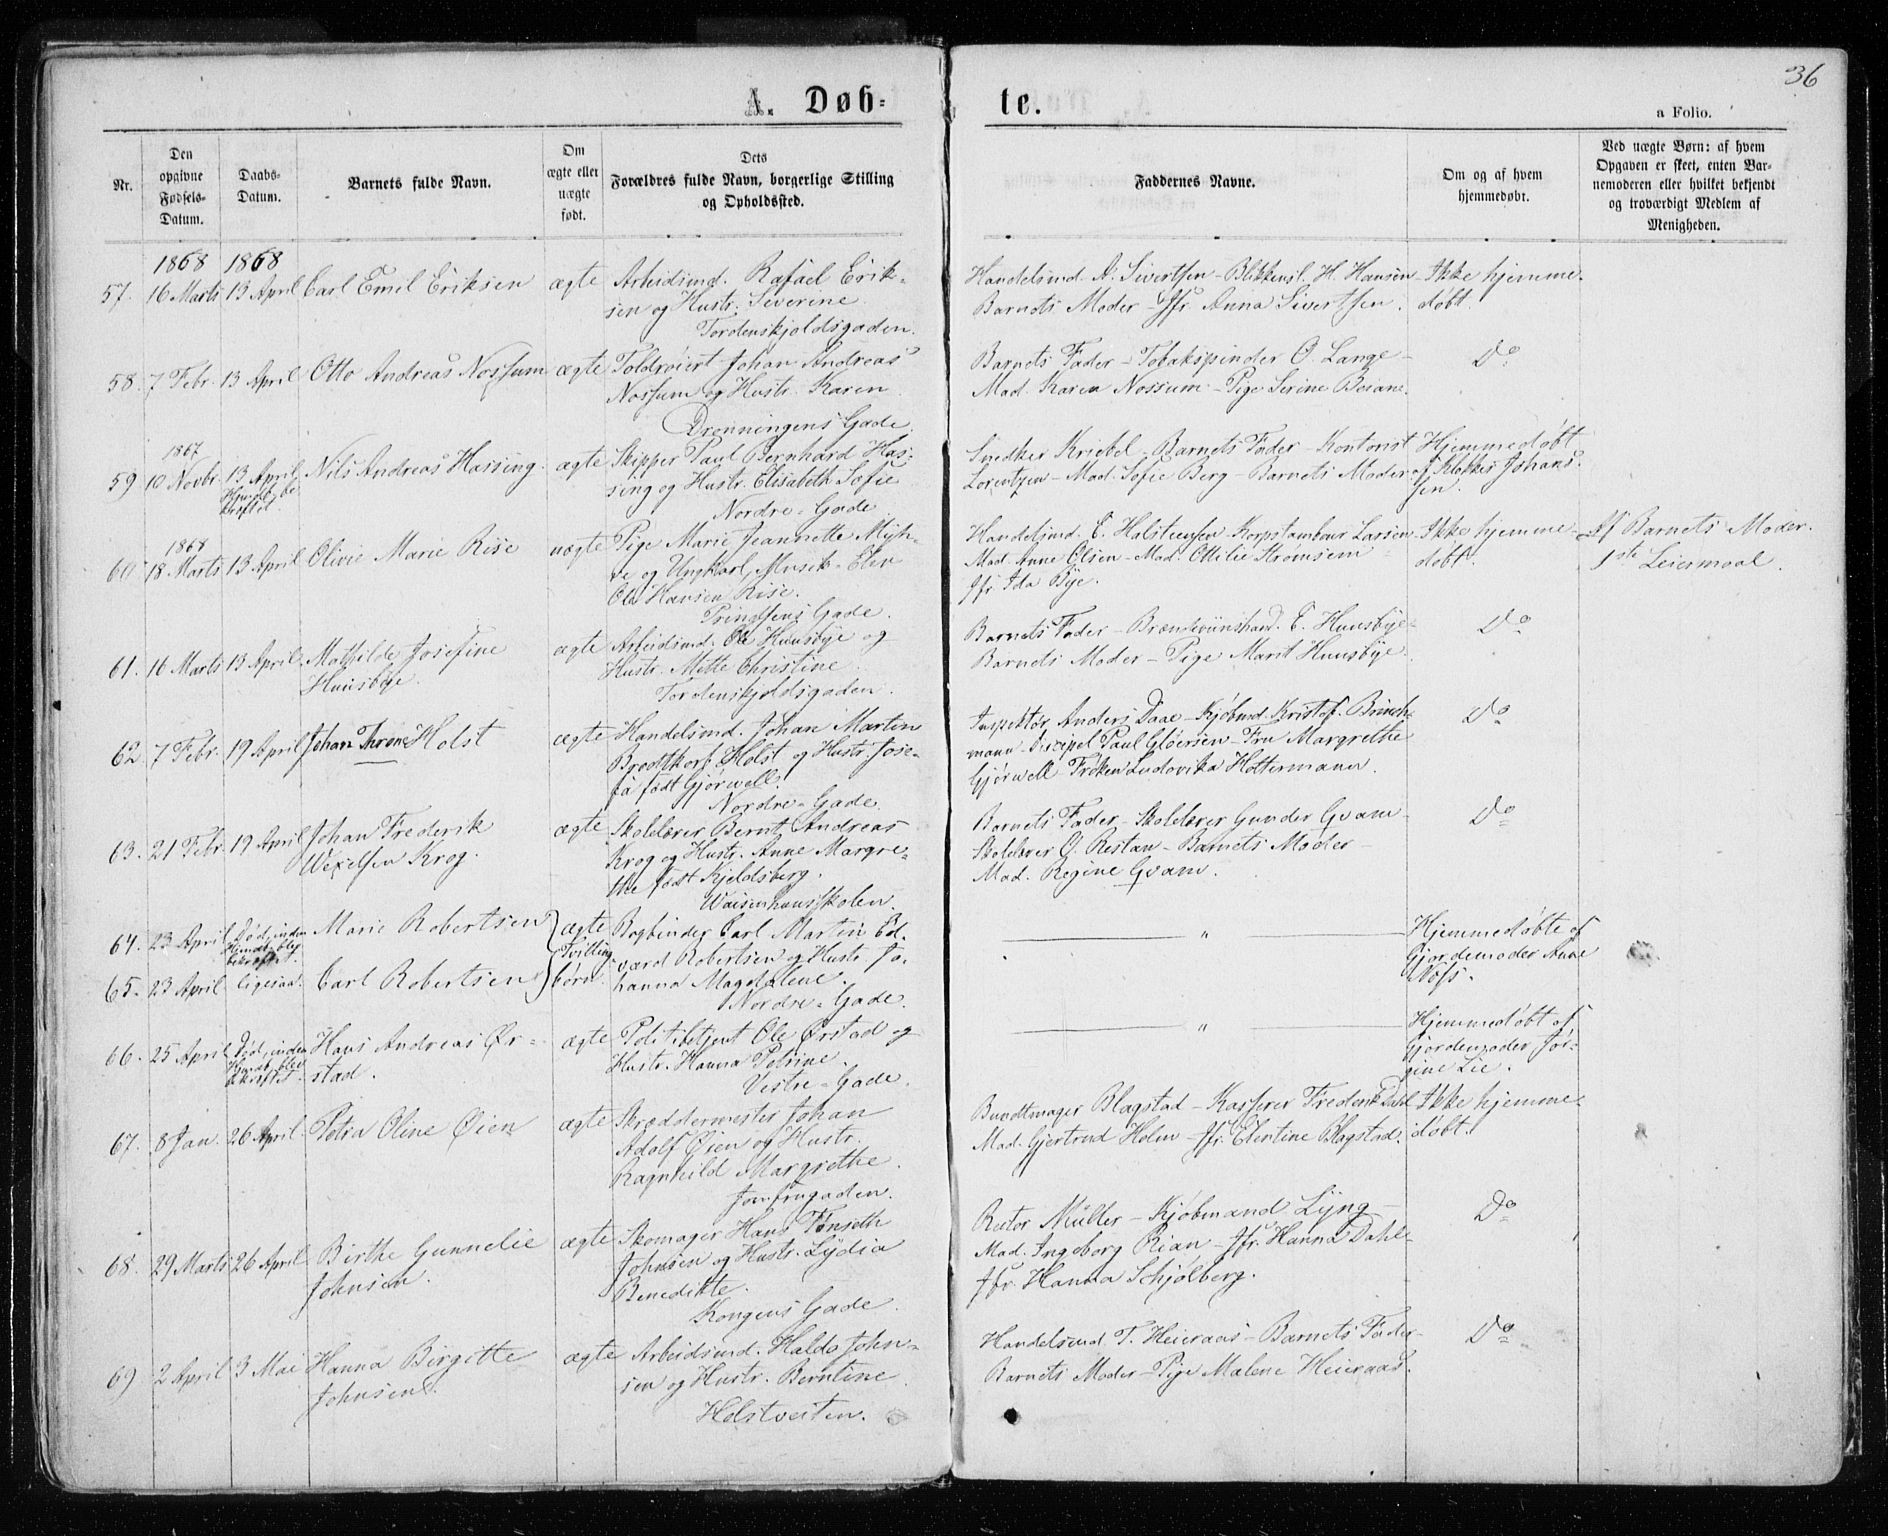 36
A. Døb-
te.
a Folio.
Nr.
Den
opgivne
Fødsels-
Datum.
Daabs-
Datum.
Barnets fulde Navn.
Om
ægte eller
uægte
født.
Dets
Forældres fulde Navn, borgerlige Stilling
og Opholdssted.
Faddernes Navne.
Om og af hvem
hjemmedøbt.
Ved uægte Børn: af hvem
Opgaven er skeet, enten Bar-
nemoderen eller hvilket bekjendt
og troværdigt Medlem af
Menigheden.
1868 1868
57. 16 Marts 13 April Carl Emil Eriksen ægte Arbeidsmd. Rafael Erik-
sen og Hustr. Severine
Tordenskjoldsgaden.
Handelsmd. A. Sivertsen - Blikkensl. H. Hansen
Barnets Moder - Jfr. Anna Sivertsen.
Ikke hjemme-
døbt.
58. 7 Febr. 13 April Otto Andreas Nossum ægte Toldrorert Johan Andreas
Nossum og Hustr. Karen
Dronningens Gade.
Barnets Fader - Tobakspinder O. Lange -
Mad. Karen Nossum - Pige Serine
Do
1867
59 10 Novbr. 13 April Nils Andreas Hassing. ægte Skipper Paul Bernhard Has-
Hjmdb. be
kræftet.
sing og Hustr. Elisabeth Sofie
Nordre-Gade.
Snedker Kriebel - Barnets Fader - Kontorist
Lorentzen - Mad. Sofie Berg - Barnets Moder
Hjemmedøbt
af Klokker Johans-
sen.
1868
60 18 Marts 13 April Olivie Marie Rise uægte Pige Marie Jeannette Myh-
re og Ungkarl, Musik-Elev
Ole Hansen Rise.
Prindsens Gade.
Handelsmd. E. Holsteensen - Korpstambur Larsen
Mad. Anne Olsen - Mad. Ottilie Strømsem
Jfr. Ida Bye.
Ikke hjemme-
døbt.
Af Barnets Moder.
1ste Leiermaal.
61. 16 Marts 13 April Mathilde Josefine
Huusbye.
ægte Arbeidsmd. Ole Huusbye og
Hustr. Mette Christine
Tordenskjoldsgaden.
Barnets Fader - Brændeviinshand. E. Huusbye
Barnets Moder - Pige Marit Huusbye.
Do
62. 7 Febr. 19 April Johan Throne Holst ægte Handelsmd. Johan Martin
Brodtkorb Holst og Hustr. Jose-
fa født Gjørwell.
Nordre-Gade.
Inspektør Anders Daae - Kjøbmd. Kristof. Brinch-
mann - Discipel Paul Gløersen - Fru Margrethe
Gjørwell Frøken Ludovika Holtermann.
Do
63. 21 Febr. 19 April Johan Frederik
Wexelsen Krog.
ægte Skolelærer Bernt Andreas
Krog og Hustr. Anne Margre-
the født Kjeldsberg.
Waisenhuusskolen.
Barnets Fader - Skolelærer Gunder Qvam -
Skolelærer O. Restan - Barnets Moder -
Mad. Regine Qvam.
Do
64. 23 April Død, inden
Hjmdb. blev
bekræftet.
Marie Robertsen
65. 23 April ligesaa. Carl Robertsen
ægte
Tvilling
børn.
Bogbinder Carl Martin Ed-
vard Robertsen og Hustr. Jo-
hanna Magdalene.
Nordre-Gade.
"
Hjemmedøbte af
Gjordemoder Anne
Næss.
66. 25 April Død, inden
Hjmdb. blev
bekræftet.
Hans Andreas Ør-
stad.
ægte Politibetjent Ole Ørstad og
Hustr. Hanna Petrine.
Vestre-Gade.
"
Hjemmedøbt af
Gjordemoder Jør-
gine Lie.
67. 8 Jan. 26 April. Petra Oline Øien ægte Skræddermester Johan
Adolf Øien og Hustr.
Ragnhild Margrethe.
Jomfrugaden.
Bundtmager Blagstad - Kasserer Frederik Dahl
Mad. Gjertrud Holm - Jfr. Elentine Blagstad.
Ikke hjemme-
døbt.
68. 29 Marts 26 April. Birthe Gunnelie
Johnsen.
ægte Skomager Hans Tønseth
Johnsen og Hustr. Lydia
Benedikte.
Kongens Gade.
Rector Müller - Kjøbmand Lyng -
Mad. Ingeborg Rian - Jfr. Hanna Dahl -
Jfr. Hanna Schjølberg.
Do
69 2 April 3 Mai Hanna Birgitte
Johnsen.
ægte Arbeidsmd. Haldo John-
sen og Hustr. Berntine
Holstveiten.
Handelsmd. T. Heieraas - Barnets Fader -
Barnets Moder - Pige Malene Heieraas.
Do